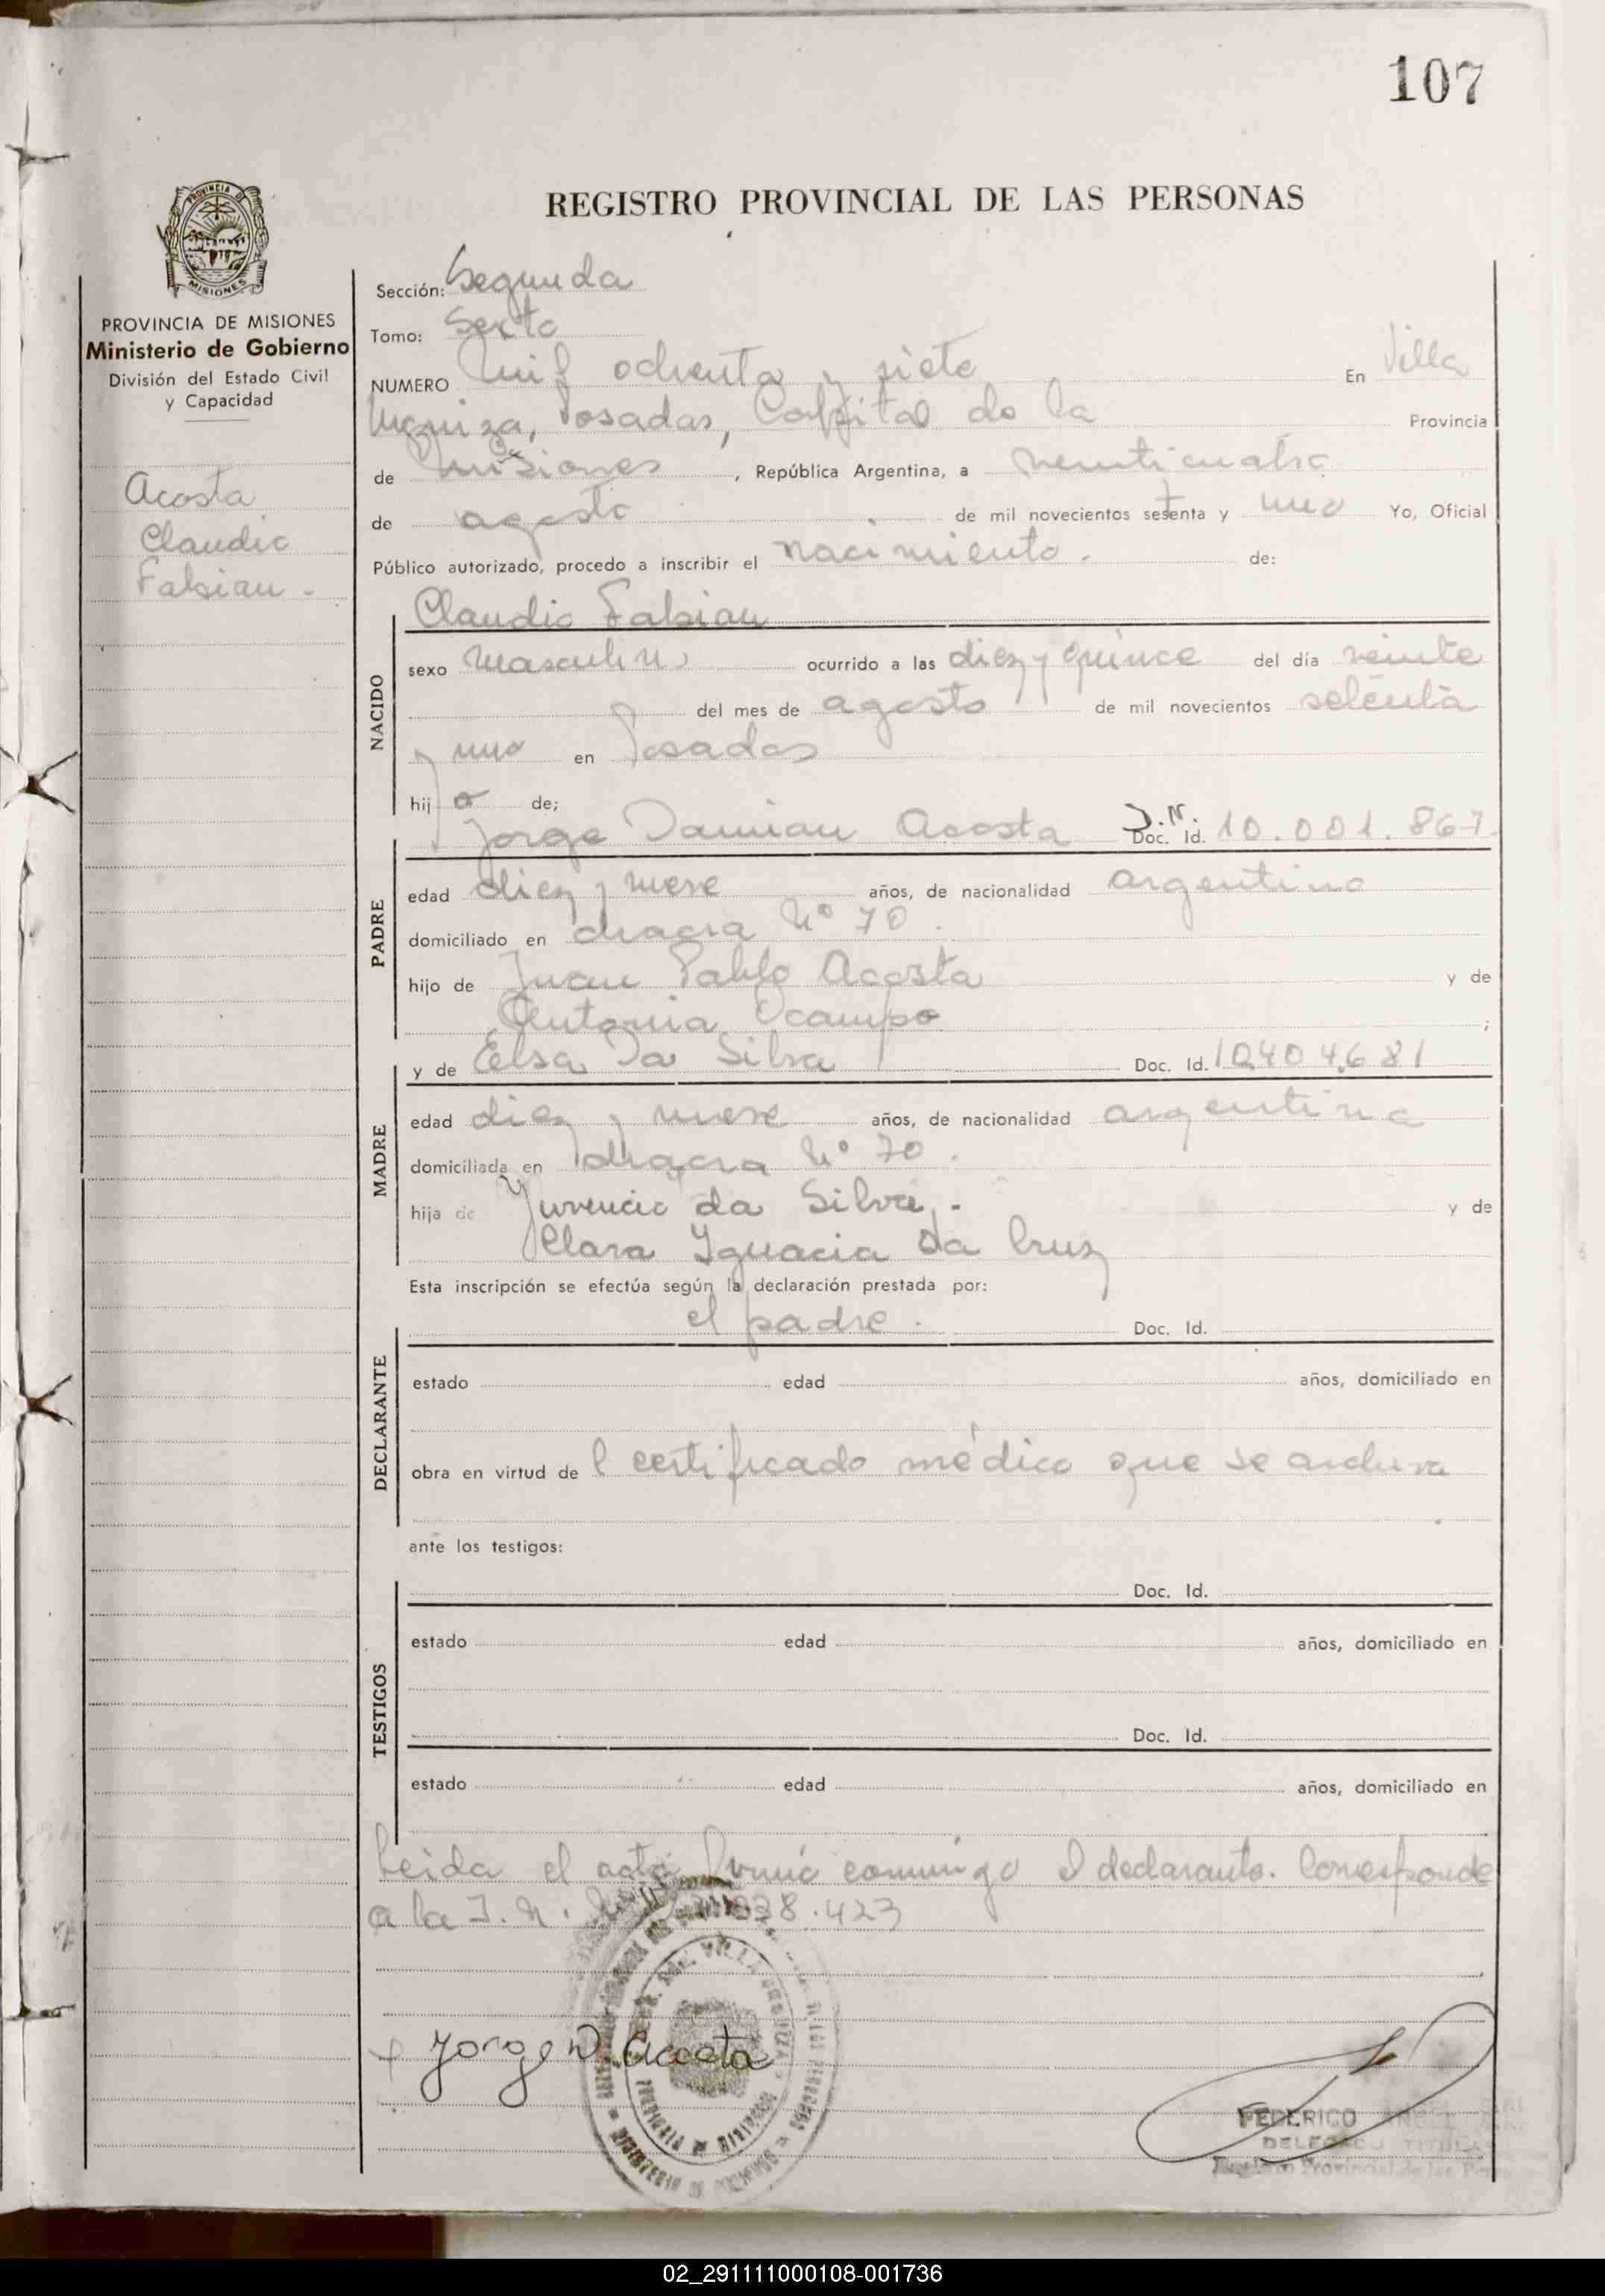 107
REGISTRO PROVINCIAL DE LAS PERSONAS
PROVINCIA DE
MISIONES
PROVINCIA DE MISIONES
Ministerio de Gobierno
División del Estado Civil
y Capacidad
Acosta
Claudio
Fabian.-
Sección: Segunda
Tomo: Sexto
NUMERO mil ochenta y siete En Villa
Urquiza, Posadas, Capital de la Provincia
de Misiones, República Argentina, a veinticuatro
de agosto de mil novecientos setenta y uno Yo, Oficial
Público autorizado, procedo a inscribir el nacimiento. de:
NACIDO
Claudio Fabian
sexo masculino ocurrido a las diez y quince del día veinte
del mes de agosto de mil novecientos setenta
y uno en Posadas
hij o de;
PADRE
Jorge Damian Acosta D.N. Doc. Id. 10.001.867
edad diez y nueve años, de nacionalidad argentino
domiciliado en chacra Nº 70.
hijo de Juan Pablo Acosta y de
Antonia Ocampo ;
MADRE
y de Elsa Da Silva Doc. Id. 10.404.681
edad diez y nueve años, de nacionalidad argentina
domiciliada en chacra Nº 70.
hija de Juvencio da Silva.- y de
Clara Ignacia Da Cruz
Esta inscripción se efectúa según la declaración prestada por:
DECLARANTE
el padre. Doc. Id.
estado edad años, domiciliado en
obra en virtud de l certificado médico que se archiva
ante los testigos:
TESTIGOS
Doc. Id.
estado edad años, domiciliado en
Doc. Id.
estado edad años, domiciliado en
Leida el acta firmó conmigo el declarante. Corresponde
a la I.N. 338.423
Jorge D. Acosta
FEDERICO
DELEGADO TITULAR
Registro Provincial de las
02_291111000108-001736